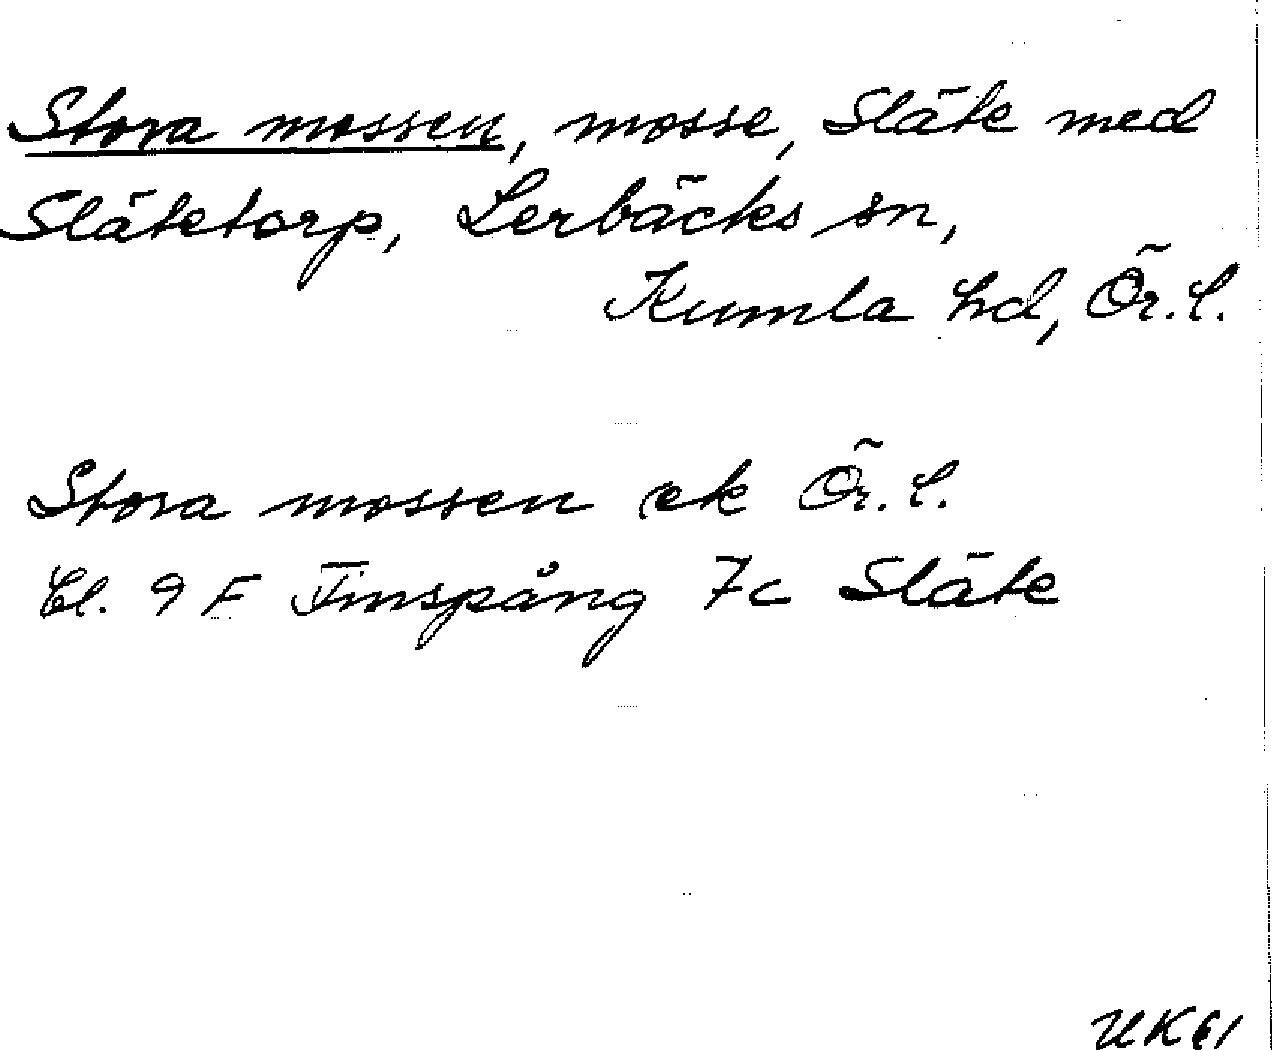 Stora mossen, mosse, Släte med
Slätetorp, Lerbäcks sn,
Kumla hd, Ör. l.
Stora mossen ek Ör. l.
Bl. 9 F Finspång 7c Släte
UK 61